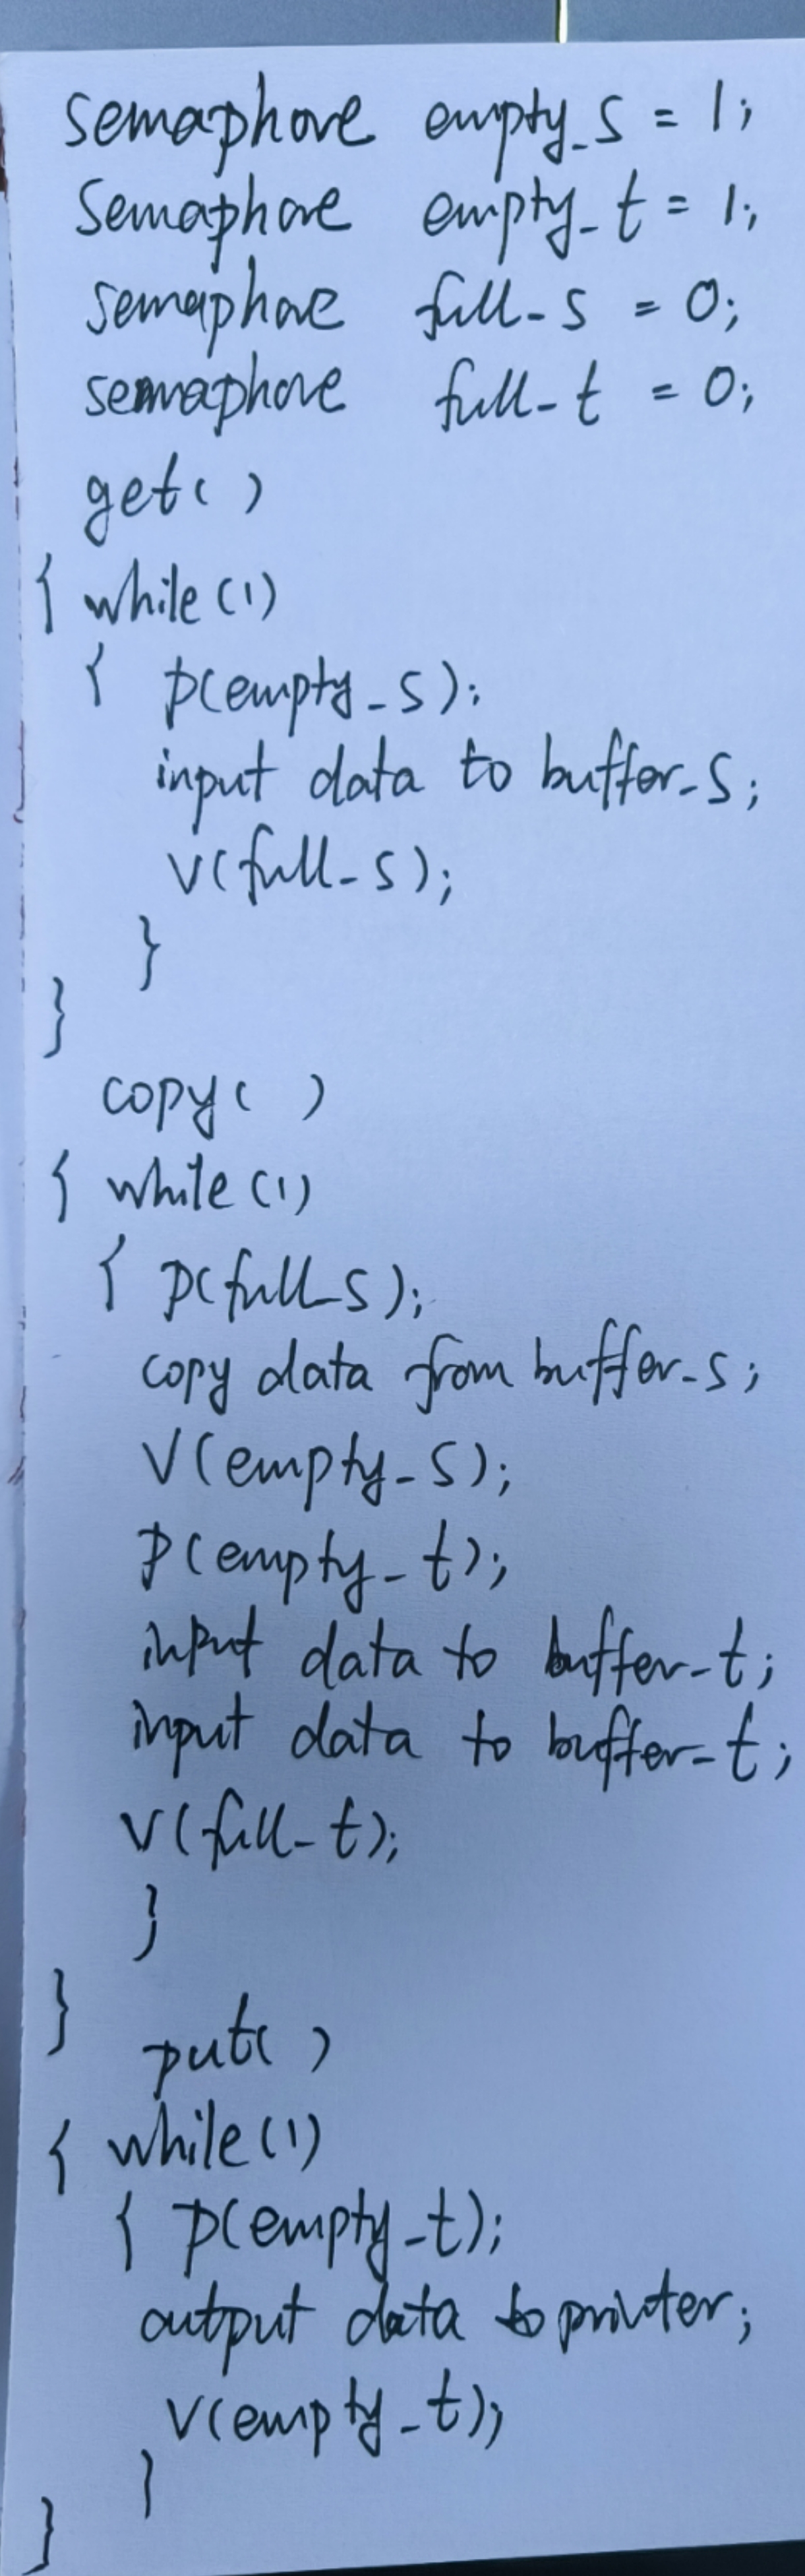 semaphore empty_s = 1;
semaphore empty_t = 1;
semaphore full_s = 0;
semaphore full_t = 0;
get( )
{ while(1)
{ p(empty_s);
input data to buffer_s;
v(full_s);
}
}
copy( )
{ while(1)
{ p(full_s);
copy data from buffer_s;
V(empty_s);
P(empty_t);
input data to buffer_t;
input data to buffer_t;
v(full_t);
}
}
put( )
{ while(1)
{ p(empty_t);
output data to printer;
v(empty_t);
}
}